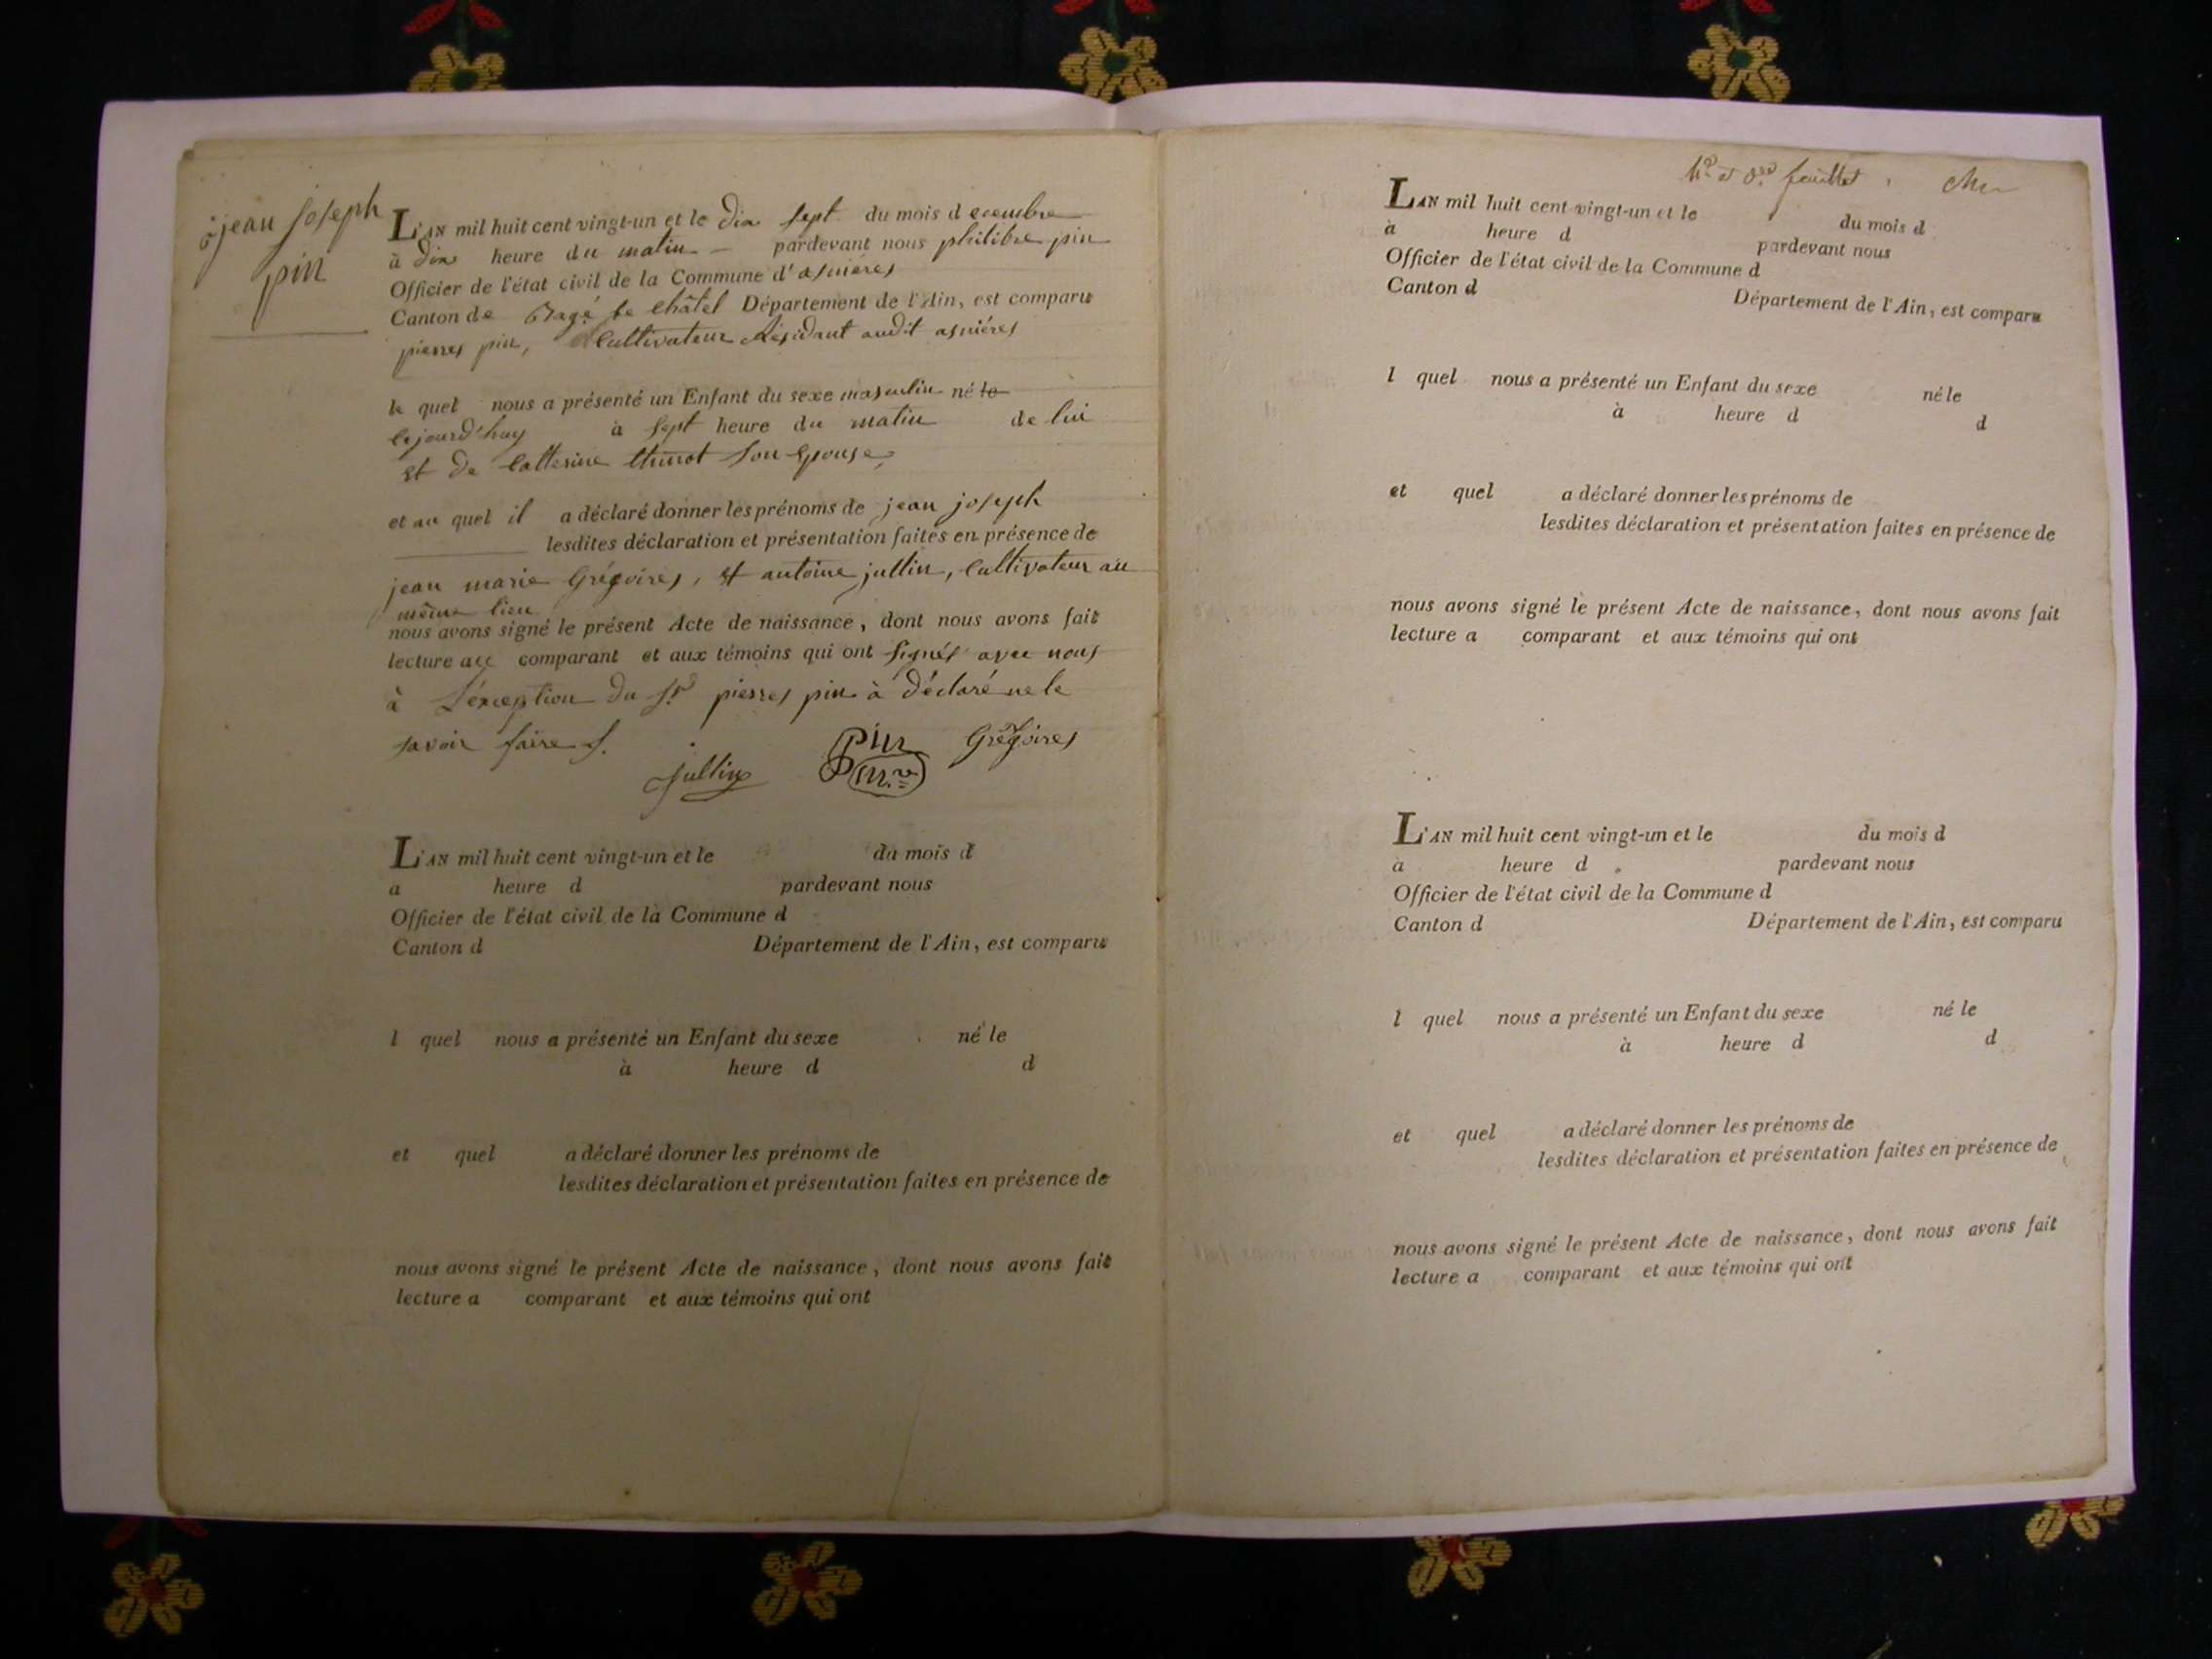 jean Joseph
pin
L'AN mil huit cent vingt-un et le dix sept du mois d ecembre
à dix heure du matin pardevant nous philibre pin
Officier de l'état civil de la Commune d'asnieres
Canton de Bagé le Châtel Département de l'Ain, est comparu
pierres pin, Cultivateur Résidant audit asniéres
le quel nous a présenté un Enfant du sexe masculin né le
cejourd'huy à sept heure du matin de lui
et de Catterine son epouse,
et au quel il a déclaré donner les prénoms de jean joseph
lesdites déclaration et présentation faites en présence de
jean marie Grégoires, et antoine jullin, Cultivateur au
même lieu
nous avons signé le présent Acte de naissance, dont nous avons fait
lecture au comparant et aux témoins qui ont signés avec nous
à L'éxception du Sr pierres pin à déclaré ne le
savoir faire
jullin Pin Grégoires
m.re
L'AN mil huit cent vingt-un et le du mois d
a heure d pardevant nous
Officier de l'état civil de la Commune d
Canton d Département de l'Ain, est comparu
l quel nous a présenté un Enfant du sexe né le
à heure d d
et quel a déclaré donner les prénoms de
lesdites déclaration et présentation faites en présence de
nous avons signé le présent Acte de naissance, dont nous avons fait
lecture a comparant et aux témoins qui ont
feuillet
L'AN mil huit cent vingt-un et le du mois d
à heure d pardevant nous
Officier de l'état civil de la Commune d
Canton d Département de l'Ain, est comparu
l quel nous a présenté un Enfant du sexe né le
à heure d d
et quel a déclaré donner les prénoms de
lesdites déclaration et présentation faites en présence de
nous avons signé le présent Acte de naissance, dont nous avons fait
lecture a comparant et aux témoins qui ont
L'AN mil huit cent vingt-un et le du mois d
à heure d pardevant nous
Officier de l'état civil de la Commune d
Canton d Département de l'Ain, est comparu
l quel nous a présenté un Enfant du sexe né le
à heure d d
et quel a déclaré donner les prénoms de
lesdites déclaration et présentation faites en présence de
nous avons signé le présent Acte de naissance, dont nous avons fait
lecture a comparant et aux témoins qui ont